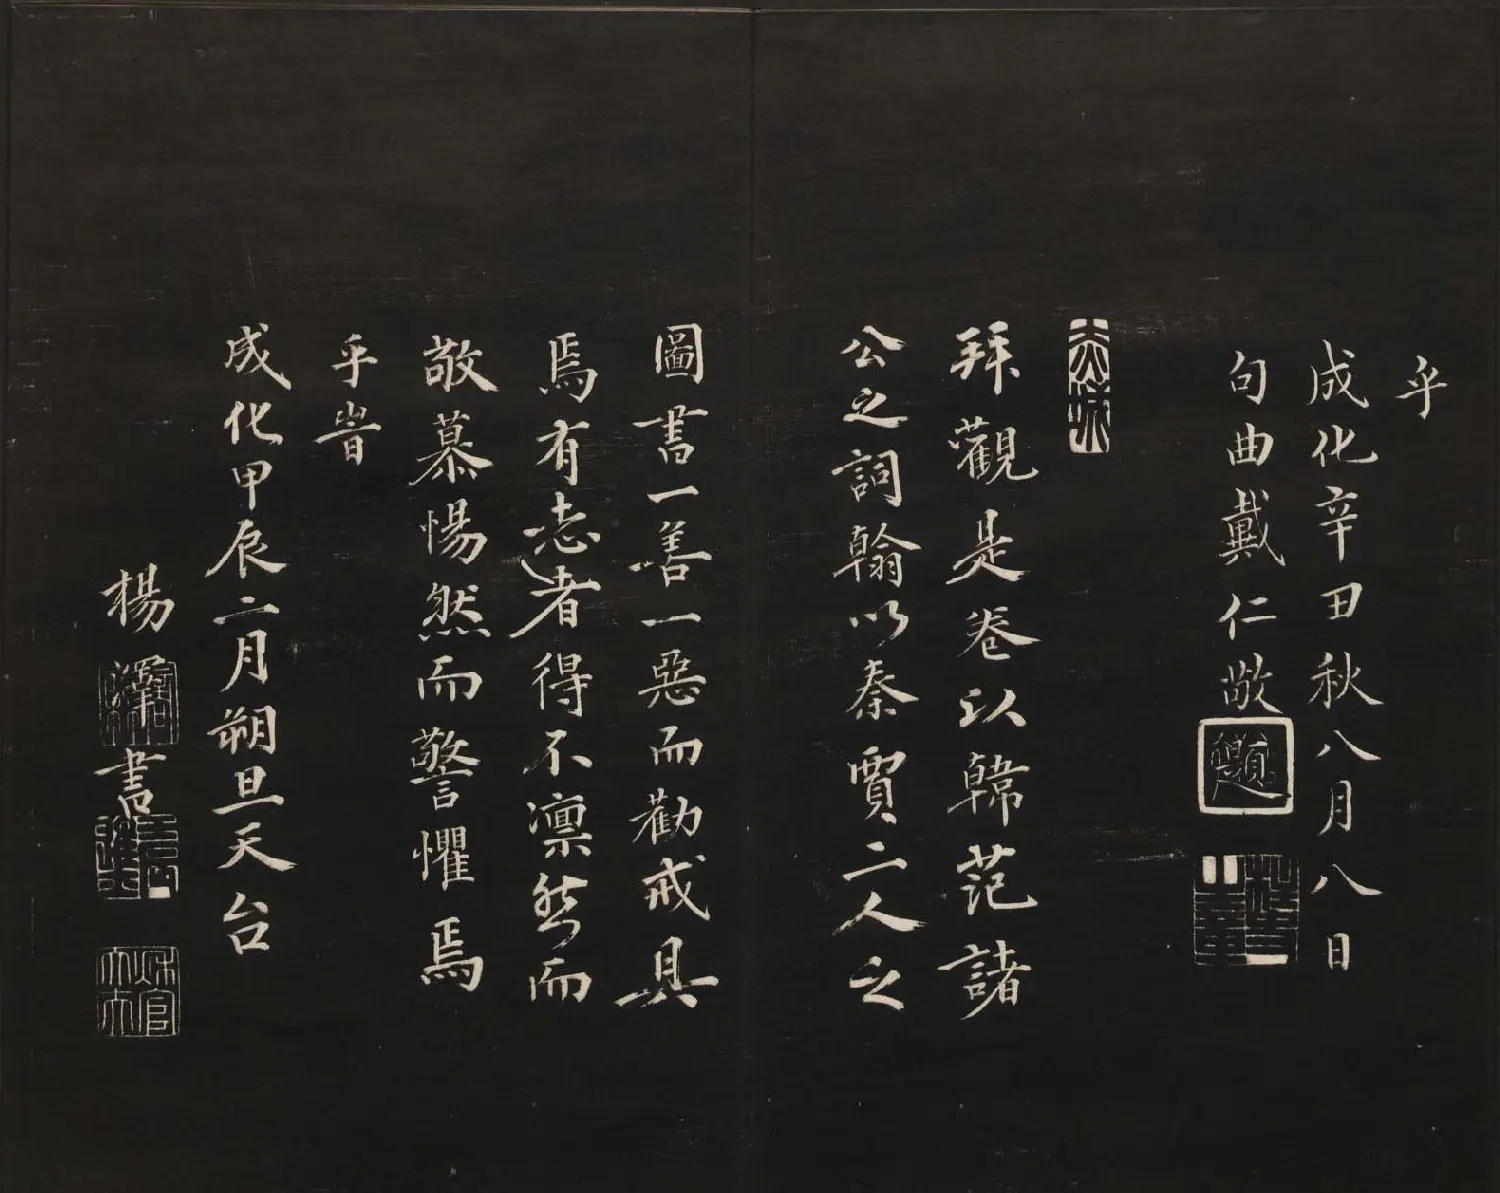 乎
成化辛丑秋八月八日
句曲戴仁敬
題
拜觀是卷以韓范諸
公之詞翰以秦賈二人之
圖書一善一惡而勸戒具
焉有志者得不凛然而
敬慕惕然而警懼焉
乎旹
成化甲辰二月朔旦天台
楊澤書